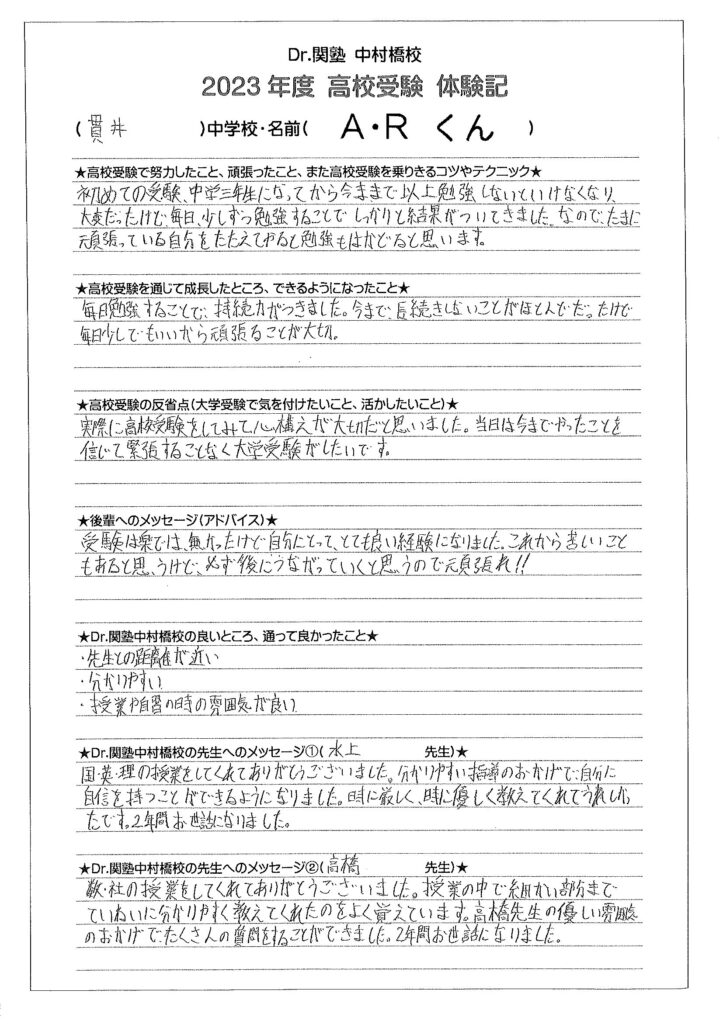 Dr.関塾 中村橋校
2023年度 高校受験 体験記
(貫井 )中学校・名前( A・R くん )
★高校受験で努力したこと、頑張ったこと、また高校受験を乗りきるコツやテクニック★
初めての受験、中学三年生になってから今まで以上勉強しないといけなくなり、
大変だったけど、毎日、少しずつ勉強することでしっかりと結果がついてきました。なので、たまに
頑張っている自分をたたえてやると勉強もはかどると思います。
★高校受験を通じて成長したところ、できるようになったこと★
毎日勉強することで、持続力がつきました。今まで、長続きしないことがほとんどだったけど
毎日少しでもいいから頑張ることが大切。
★高校受験の反省点(大学受験で気を付けたいこと、活かしたいこと)★
実際に高校受験をしてみて心構えが大切だと思いました。当日は今までやったことを
信じて緊張することなく大学受験がしたいです。
★後輩へのメッセージ(アドバイス)★
受験は楽では、無かったけど自分にとって、とても良い経験になりました。これから苦しいこと
もあると思うけど、必ず後につながっていくと思うので頑張れ!!
★Dr.関塾中村橋校の良いところ、通って良かったこと★
・先生との距離が近い
・分かりやすい
・授業や自習の時の雰囲気が良い
★Dr.関塾中村橋校の先生へのメッセージ①(水上 先生)★
国・英・理の授業をしてくれてありがとうございました。分かりやすい指導のおかげで、自分に
自信を持つことができるようになりました。時に厳しく、時に優しく教えてくれてうれしかっ
たです。2年間お世話になりました。
★Dr.関塾中村橋校の先生へのメッセージ②(高橋 先生)★
数・社の授業をしてくれてありがとうございました。授業の中で細かい部分まで
ていねいに分かりやすく教えてくれたのをよく覚えています。高橋先生の優しい雰囲気
のおかげでたくさんの質問をすることができました。2年間お世話になりました。